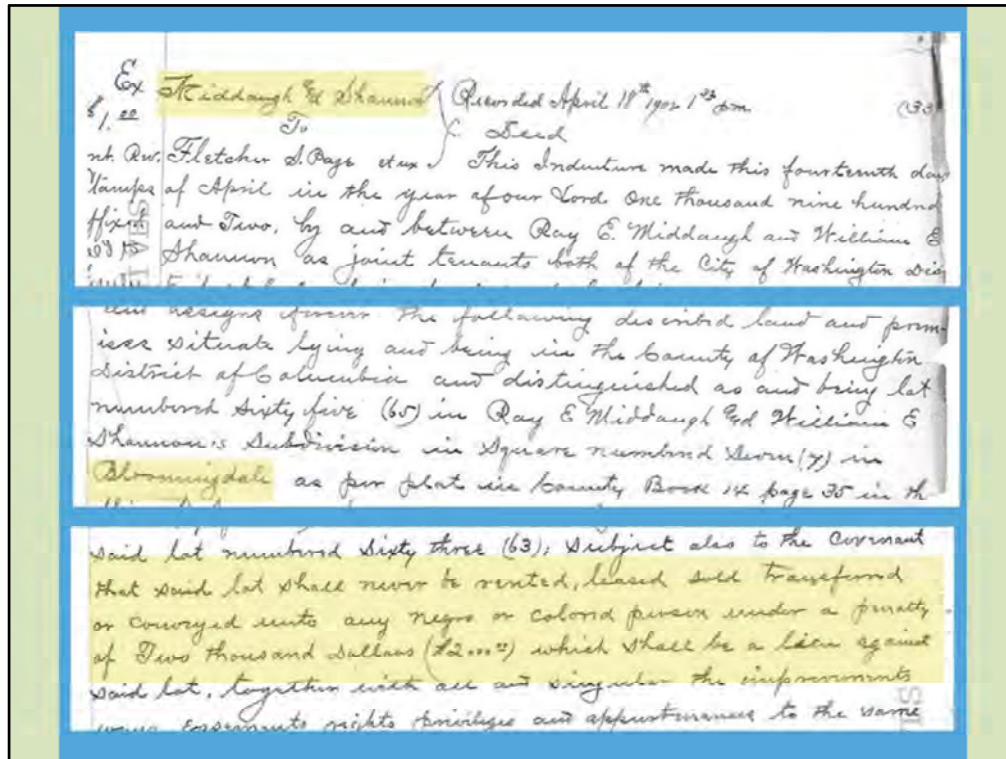 Ex Middaugh &d Shannon Recorded April 18th 1902 1 23 pm (33
$1.00 To Deed
nt. Rev. Fletcher S. Page et ux This Indenture made this fourteenth day
Stamps of April in the year of our Lord One thousand nine hundred
ffixed and Two, by and between Ray E. Middaugh and William E
Shannon as joint tenants both of the City of Washington Dis
and assigns forever the following described land and prem-
ises situate lying and being in the County of Washington
District of Columbia and distinguished as and being lot
numbered Sixty five (65) in Ray E Middaugh &d William E
Shannon's Subdivision in Square numbered Seven (7) in
Bloomingdale as per plat in County Book 14 page 35 in th
said lot numbered Sixty three (63); Subject also to the Covenant
that said lot shall never be rented, leased sold transferred
or conveyed unto any negro or colored person under a penalty
of Two thousand Dollars ($2000 00) which shall be a lien against
said lot, together with all and singular the improvements
ways Easements rights privileges and appurtenances to the same